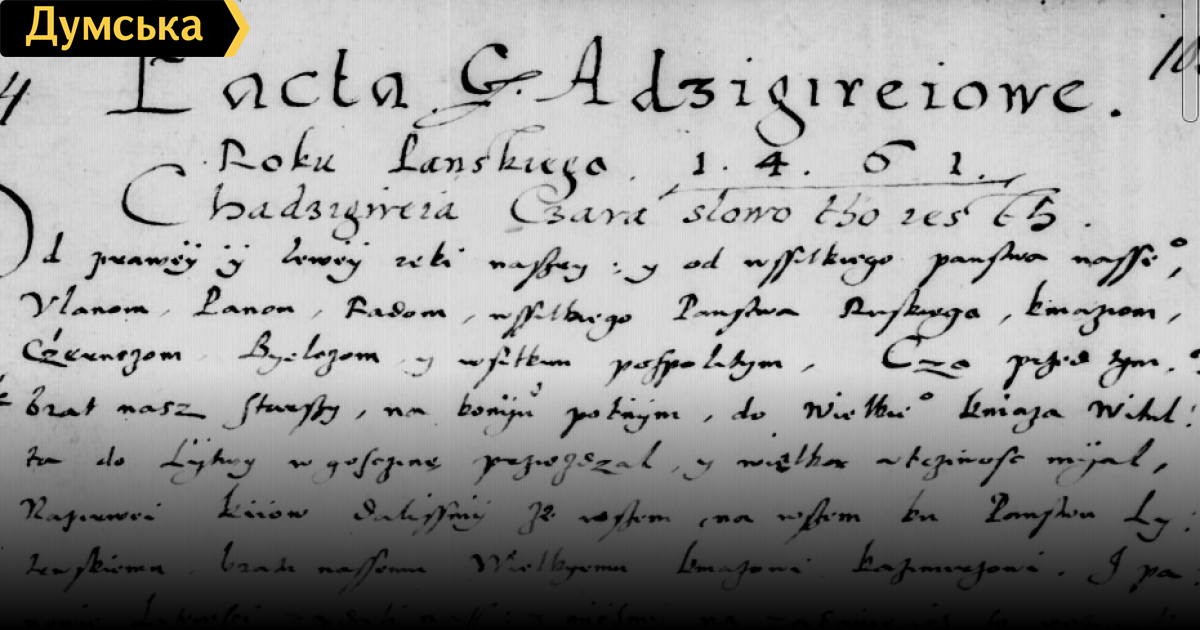 Думська
Pacta G. Adzigireiowe.
Roku Panskiego. 1. 4. 6 1.
Chadzigireia Czara slowo tho iest
Od prawey y lewey reki naszey: y od wssitkiego panstwa nasse°,
Vlanom, Panom, Radom, wssitkiego Panstwa Ruskiego, kniaziom,
Czernczom Byelczom y wsitkim pospolitym, Czo przed tym,
brat nasz starszy, na koniu potnym, do Wielkie° kniaza Witul
ta do Lytwy w gosczine przieżdzal, y wielkos utcziwosc myal,
Napirwei kiiow dalissmy ze wstem, na wstem ku Panstwu Ly
tewskiemu, bratu nassemu Wielkyemu kniazowi Kazimirzowi. I pa